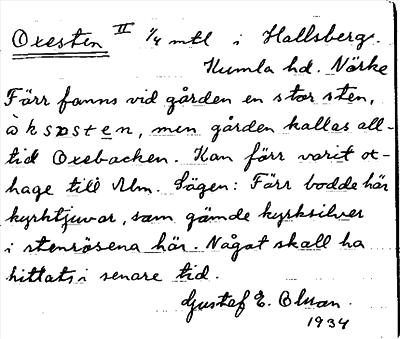 Oxesten II 1/4 mtl i Hallsberg.
Kumla hd. Närke
Förr fanns vid gården en stor sten,
òksɒsten, men gården kallas all-
tid Oxebacken. Kan förr varit ox-
hage till Alm. Sägen: Förr bodde här
kyrktjuvar, som gömde kyrksilver
i stenrösena här. Något skall ha
hittats i senare tid.
Gustaf E. Olsson.
1934